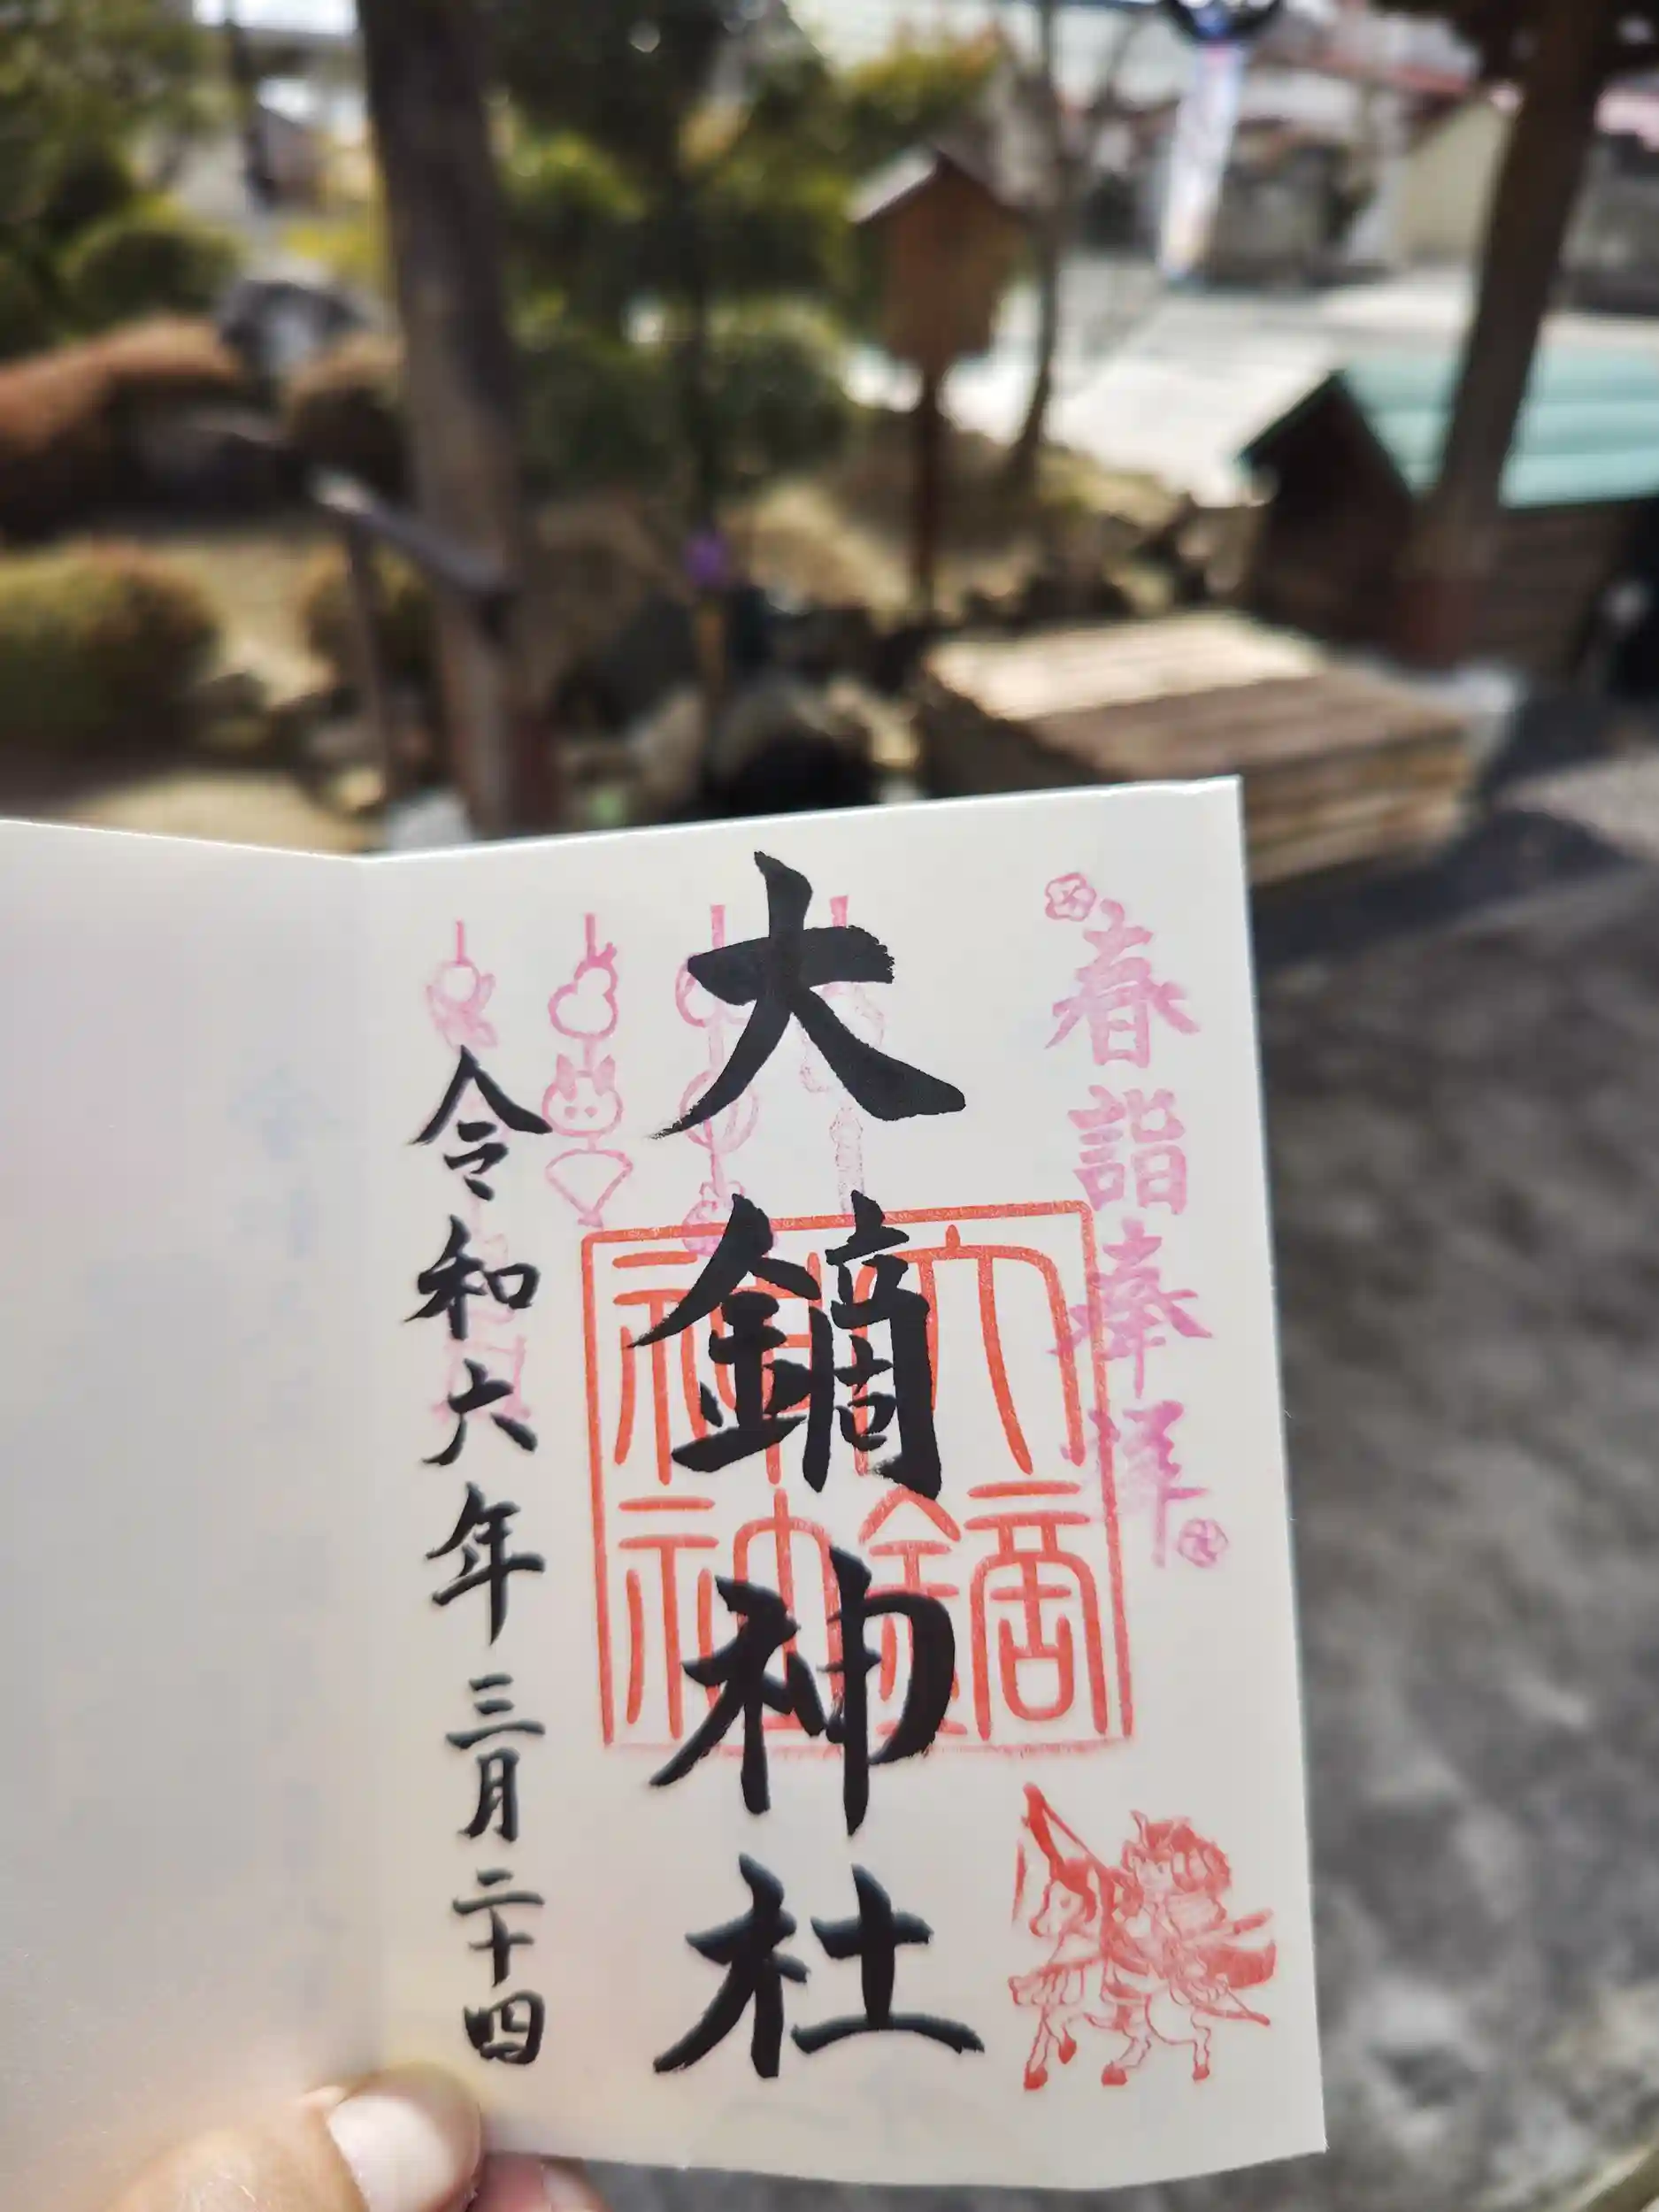 春詣奉拝
大鏑神社
大鏑神社
令和六年三月二十四